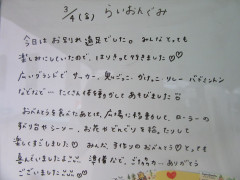 3/4(金) らいおんぐみ
今日はお別れ遠足でした。みんなとっても
楽しみにしていたので、はりきって行きました♡
広いグランドで サッカー、鬼ごっこ、かけっこ、リレー、バドミントン
などなど… たくさん体を動かしてあそびました
おべんとうを食べたあとは、広場に移動して、ローラーの
すべり台やシーソー、お花やどんぐりを拾ったりして
楽しくすごしました♡ みんな、手作りのおべんとう♡とっても
喜んでいましたよ 準備など、ご協力… ありがとう
ございました